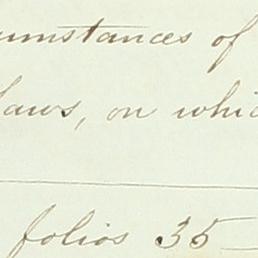 umstances of
laws, on whic
folios 35